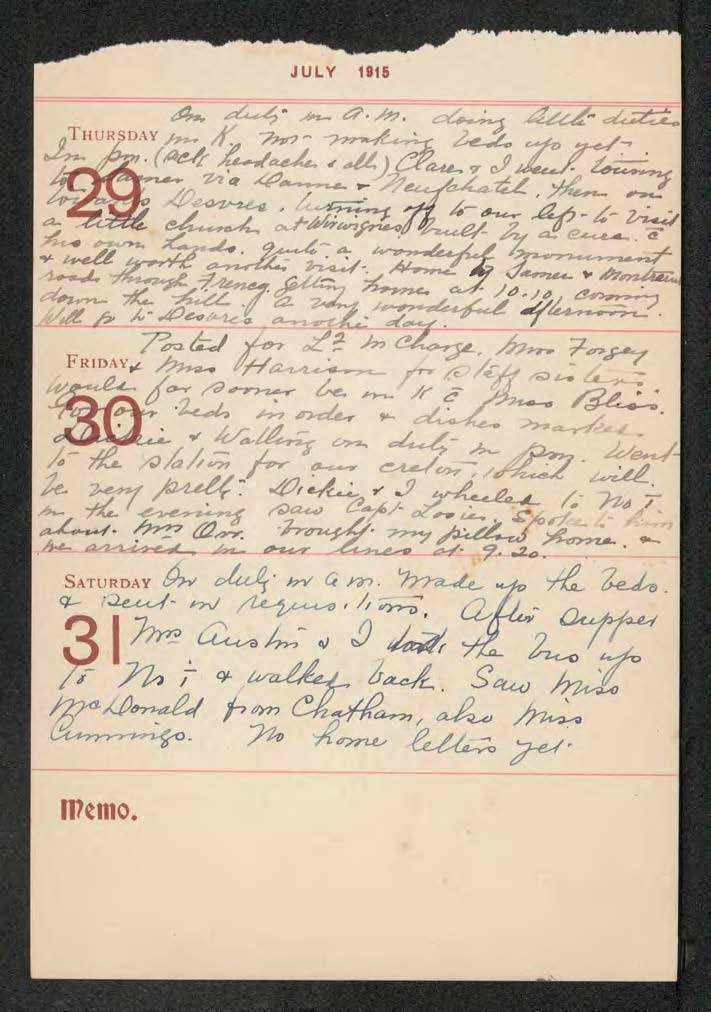 JULY 1915
On duty in A.M. doing little duties
THURSDAY in K not making beds up yet.
In pm. (sick headaches & all) Clare & I went touring
29 to Samer via Dannes & Neufchatel, then on
towards Desvres. turning off to our left to visit
a little church at Wirwignes built by a cure. c̄
his own hands. quite a wonderful monument
& well worth another visit. Home by Samer & Montreuil
roads through Frencq. getting home at 10.10 coming
down the hill. A very wonderful afternoon.
Will go to Desvres another day.
Posted for L2 in charge. Miss Forgey
FRIDAY & Miss Harrison for staff sisters
would far sooner be in K c̄ Miss Bliss.
30 our beds in order & dishes marked
Dickie & Walling on duty in pm. Went
to the station for our creton, which will
be very pretty. Dickie & I wheeled to No 1
in the evening saw Capt Losie. Spoke to him
about Mrs Orr. brought my pillow home. &
we arrived in our lines at 9.20.
SATURDAY On duty in a.m. Made up the beds.
& sent in requisitions. After supper
31 Mrs Austin & I took the bus up
to No 1 & walked back. Saw Miss
McDonald from Chatham, also Miss
Cummings. No home letters yet.
Memo.